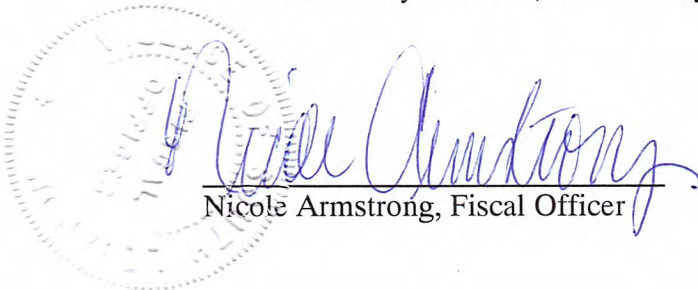 Nicole Armstrong
Nicole Armstrong, Fiscal Officer